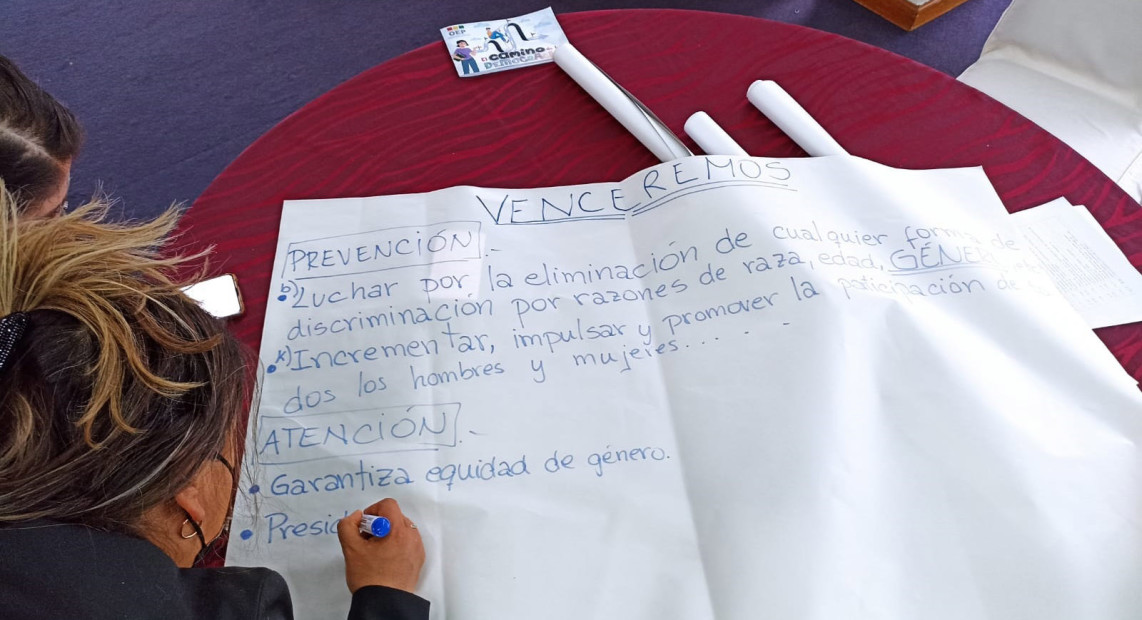 OEP
El camino
DEMOCRÁ
VENCEREMOS
PREVENCIÓN.-
b) Luchar por la eliminación de cualquier forma de
discriminación por razones de raza, edad, GÉNE
k) Incrementar, impulsar y promover la paticipación de
dos los hombres y mujeres... . . - -
ATENCIÓN.-
• Garantiza equidad de género.
• Presid